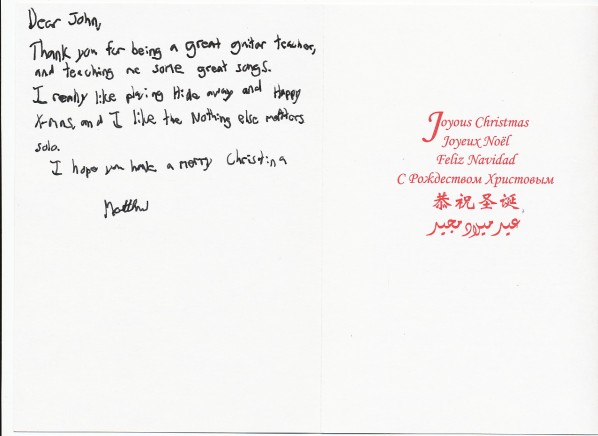 Dear John,
Thank you for being a great guitar teacher,
and teaching me some great songs.
I really like playing Hide away and Happy
X-mas, and I like the Nothing else matters
solo.
I hope you have a merry Christma
Matthew
Joyous Christmas
Joyeux Noël
Feliz Navidad
С Рождеством Христовым
恭祝圣诞
عيد ميلاد مجيد